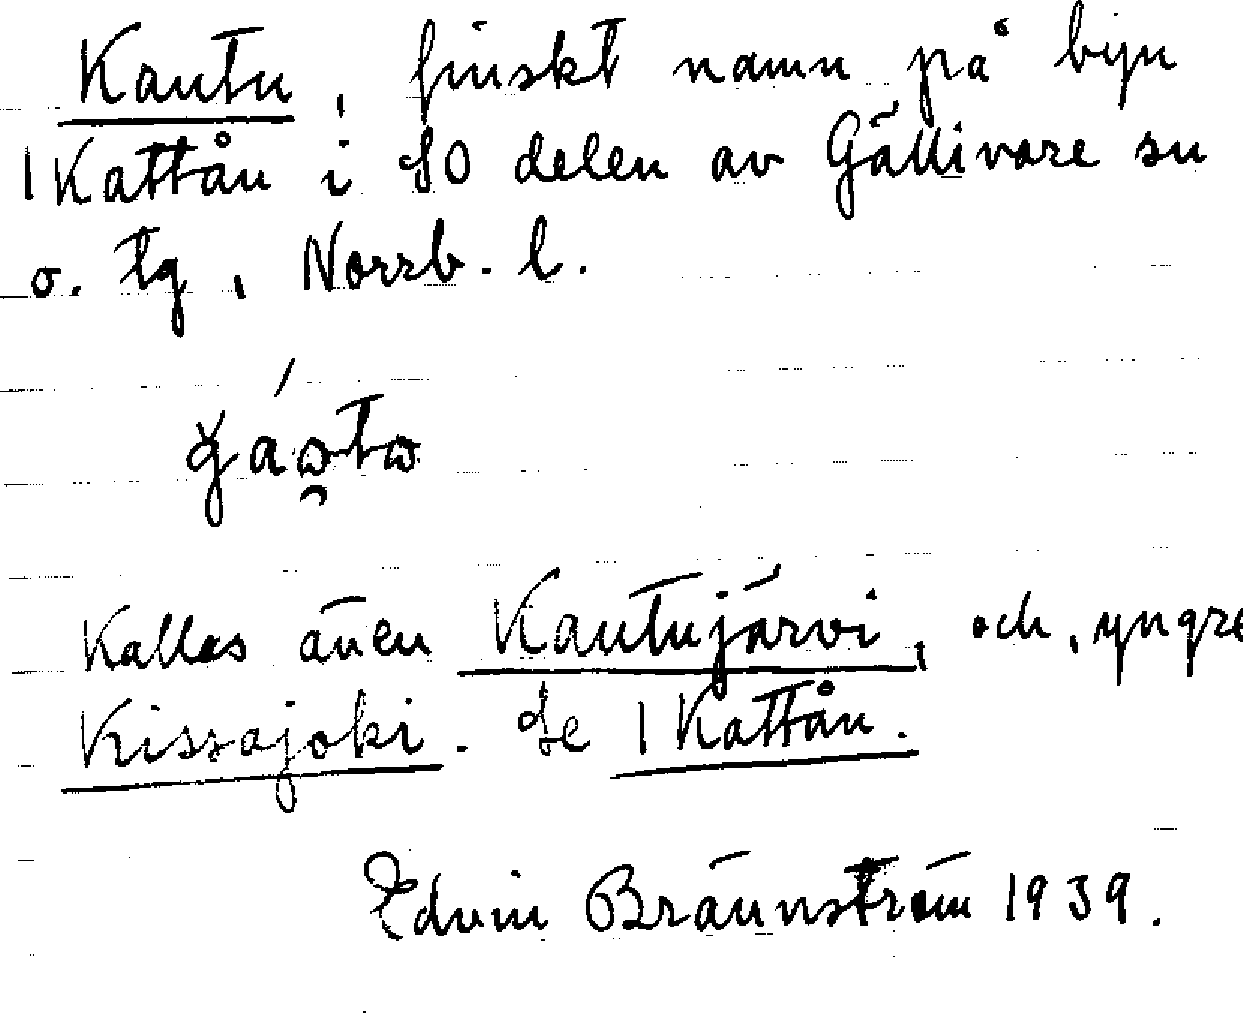 Kautu, finskt namn på byn
1 Kattån i SO delen av Gällivare sn
o. tg, Norrb. l.
Kallas även Kautujärvi, och, yngre
Kissajoki. Se 1 Kattån.
Edvin Brännström 1939.